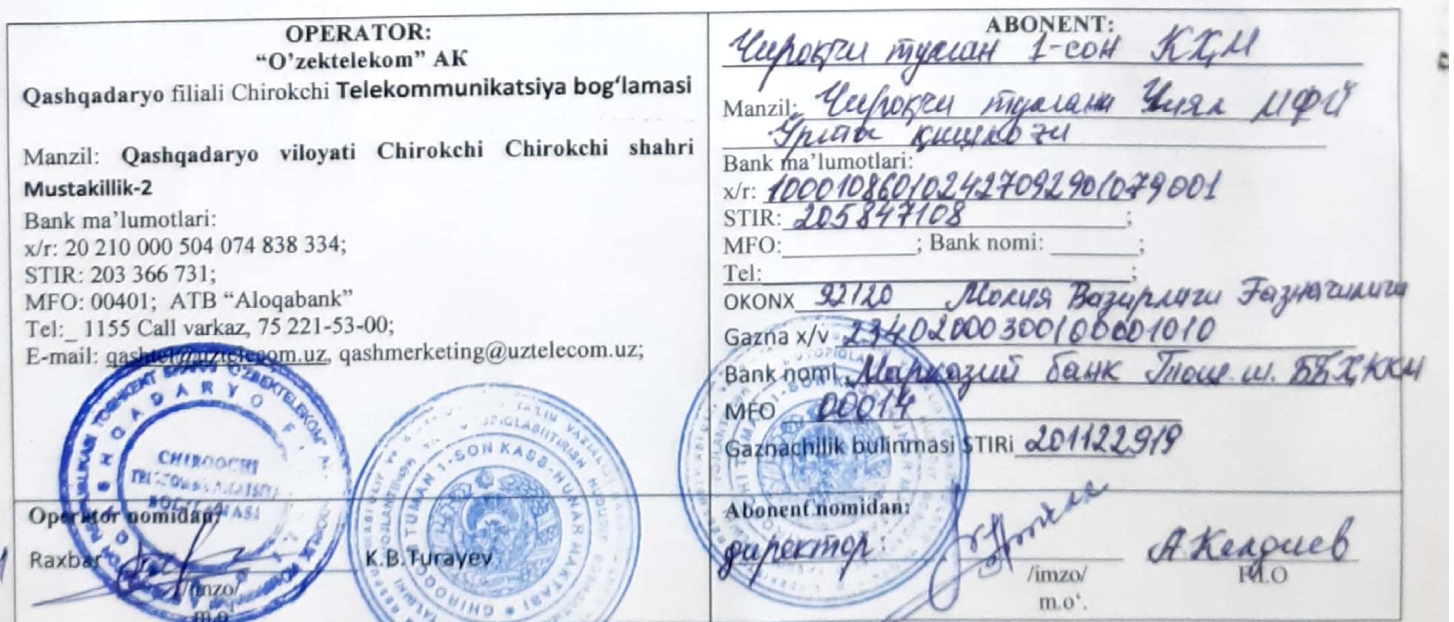 OPERATOR:
“O’zektelekom” AK
Qashqadaryo filiali Chirokchi Telekommunikatsiya bog‘lamasi
Manzil: Qashqadaryo viloyati Chirokchi Chirokchi shahri
Mustakillik-2
Bank ma’lumotlari:
x/r: 20 210 000 504 074 838 334;
STIR: 203 366 731;
MFO: 00401; ATB “Aloqabank”
Tel:_ 1155 Call varkaz, 75 221-53-00;
E-mail: qashtel@uztelecom.uz, qashmerketing@uztelecom.uz;
CHIROQCHI
Operator nomidan:
Raxbar K.B.Turayev
/imzo/
m.o‘
ABONENT:
Чироқчи туман 1-сон КҲМ
Manzil: Чироқчи тумани МФЙ
қишлоғи
Bank ma’lumotlari:
x/r: 100010860102427092901079001
STIR: 205847108;
MFO: ; Bank nomi: ;
Tel: ;
OKONX 92120 Молия Вазирлиги Ғазначилиги
Gazna x/v 23402000300100001010
Bank nomi Марказий банк Тош. ш. ББҲККМ
MFO 00014
Gaznachilik bulinmasi STIRi 201122919
Abonent nomidan:
директор:
А.Келдиев
/imzo/ F.I.O
m.o‘.
1-SON KASB-HUNAR MAKTABI